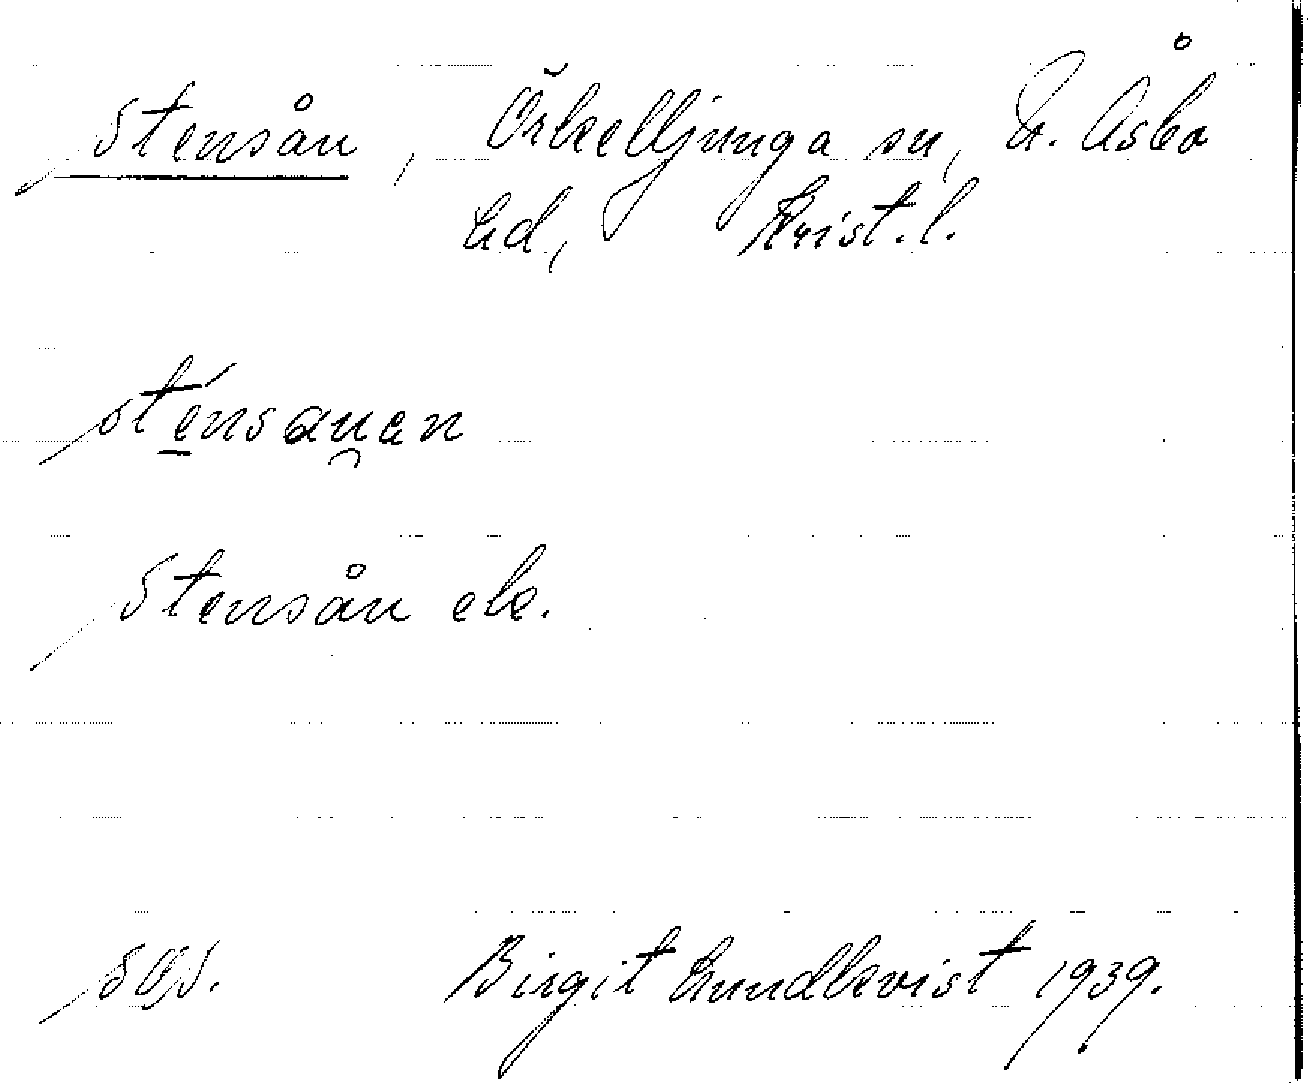 Stensån, Örkelljunga sn, N. Åsbo
hd, Krist. l.
sténsau̯an
Stensån ek.
Birgit Lundkvist 1939.